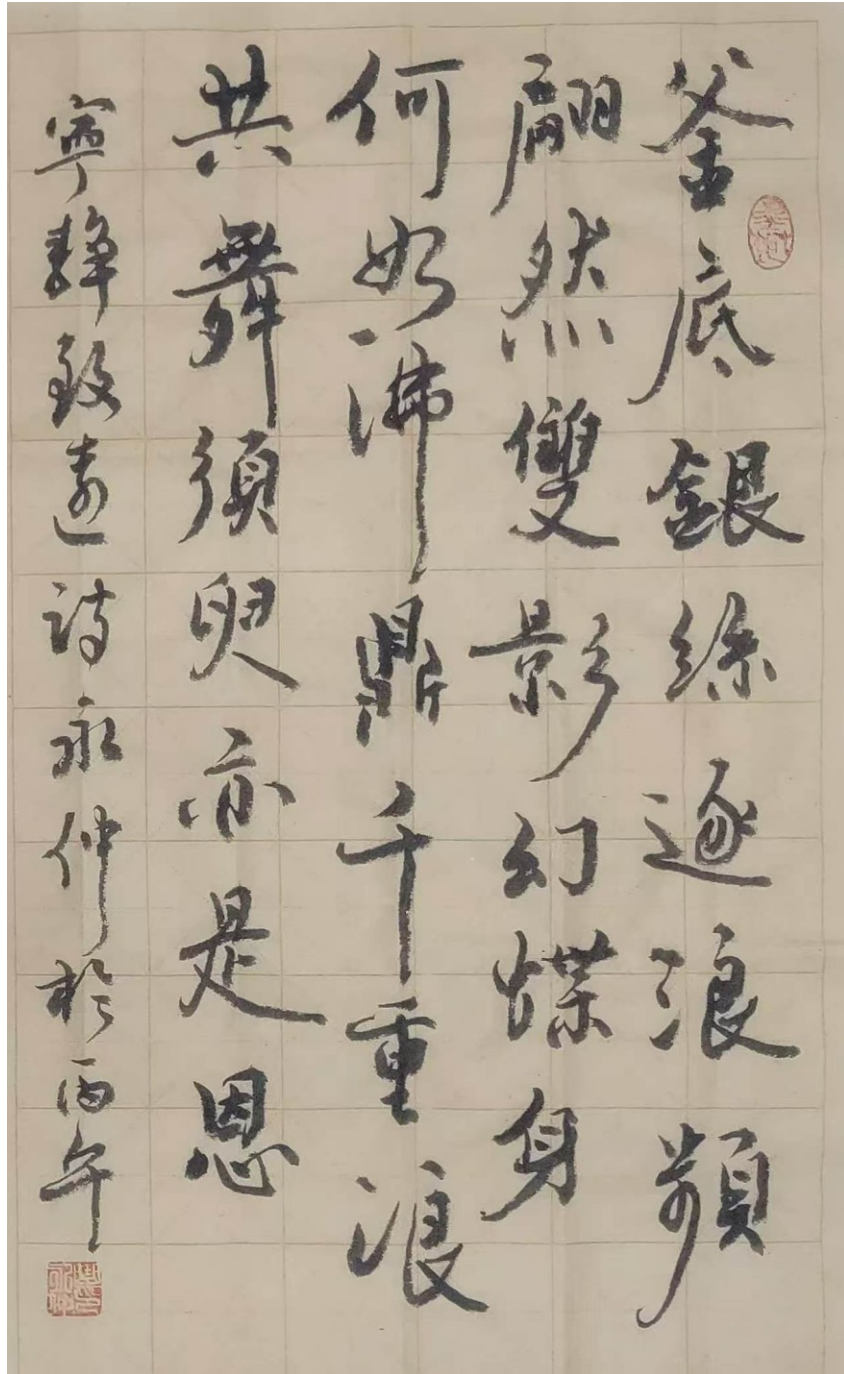 釜底銀絲逐浪頻
翩然雙影幻蝶身
何如沸鼎千重浪
共舞須臾亦是恩
寧靜致遠詩永仲於丙午